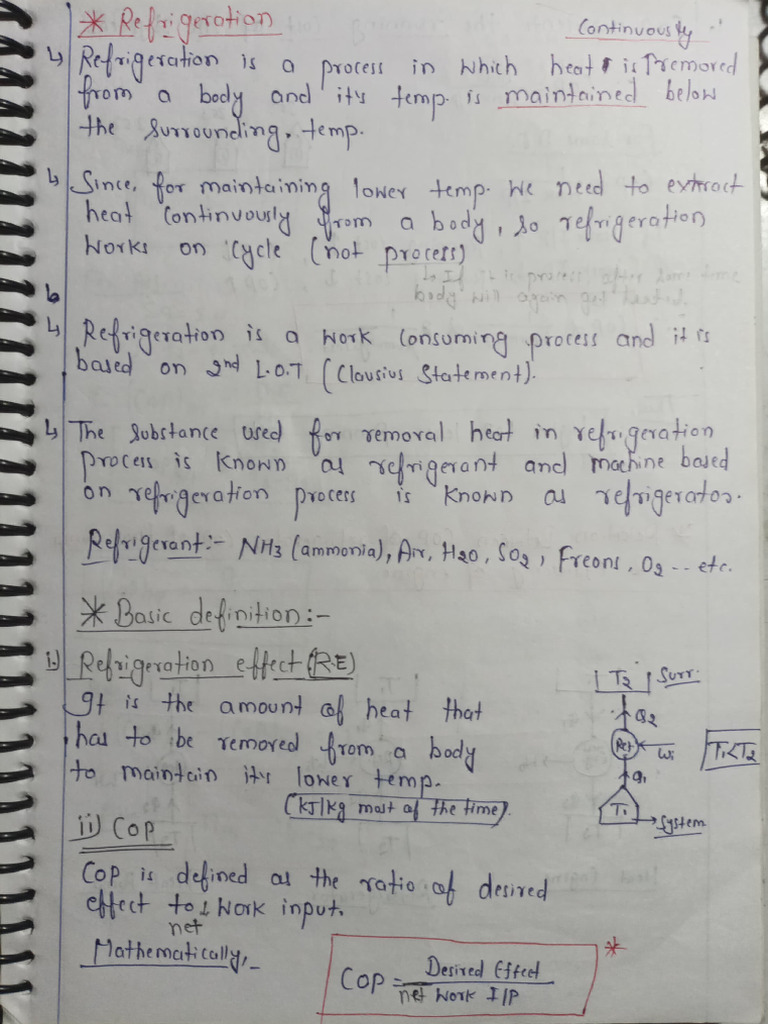 * Refrigeration
Continuously
↳ Refrigeration is a process in which heat is ↑ removed
from a body and it's temp. is maintained below
the surrounding. temp.
↳ Since, for maintaining lower temp. We need to extract
heat continuously from a body, so refrigeration
works on cycle (not process)
↳ Refrigeration is a work consuming process and it is
based on 2nd L.O.T (Clausius Statement).
↳ The substance used for removal heat in refrigeration
process is known as refrigerant and machine based
on refrigeration process is known as refrigerator.
Refrigerant:- NH3 (ammonia), Air, H2O, SO2, Freons, O2 -- etc.
* Basic definition:-
i.) Refrigeration effect (R.E)
It is the amount of heat that
has to be removed from a body
to maintain it's lower temp.
(KJ/kg most of the time).
T2 Surr.
Q2
Ref Wi
T1<T2
Q1
T1
System
ii) COP
COP is defined as the ratio of desired
effect to net work input.
Mathematically,-
COP = Desired Effect / net Work I/P *